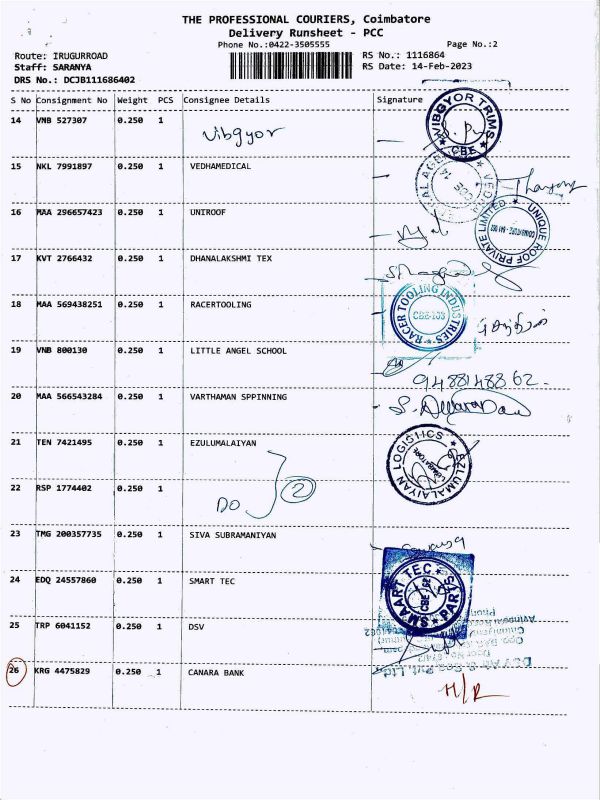 THE PROFESSIONAL COURIERS, Coimbatore
Delivery Runsheet - PCC
Phone No.:0422-3505555 Page No.:2
Route: IRUGURROAD RS No.: 1116864
Staff: SARANYA RS Date: 14-Feb-2023
DRS No.: DCJB111686402
S No Consignment No Weight PCS Consignee Details Signature
14 VNB 527307 0.250 1 Vibgyor
VIBGYOR TRIMS
CBE
15 NKL 7991897 0.250 1 VEDHAMEDICAL
16 MAA 296657423 0.250 1 UNIROOF
UNIQUE ROOF PRIVATE LIMITED
17 KVT 2766432 0.250 1 DHANALAKSHMI TEX
18 MAA 569438251 0.250 1 RACERTOOLING
RACER TOOLING INDUSTRIES
CBE-103
19 VNB 800130 0.250 1 LITTLE ANGEL SCHOOL
9488148862-
20 MAA 566543284 0.250 1 VARTHAMAN SPPINNING
21 TEN 7421495 0.250 1 EZULUMALAIYAN
EZLUMALAIYAN LOGISTICS
22 RSP 1774402 0.250 1
DO 2
23 TMG 200357735 0.250 1 SIVA SUBRAMANIYAN
24 EDQ 24557860 0.250 1 SMART TEC
SMAART TEC PARTS
25 TRP 6041152 0.250 1 DSV
26 KRG 4475829 0.250 1 CANARA BANK
H/R